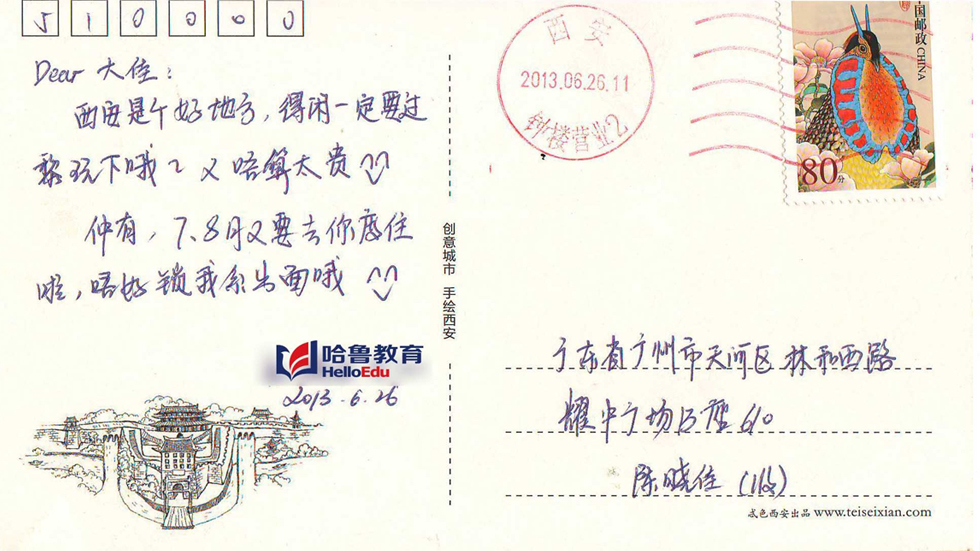 510000
Dear 大佳：
西安是个好地方，得闲一定要过
黎玩下哦~又唔算太贵
仲有，7、8月又要去你度住
啦，唔好锁我系出面哦
哈鲁教育
HelloEdu
2013.6.26
创意城市 手绘西安
西安
2013.06.26.11
钟楼营业2
中国邮政 CHINA
80分
广东省广州市天河区林和西路
耀中广场B座610
陈晓佳（收）
忒色西安出品 www.teiseixian.com